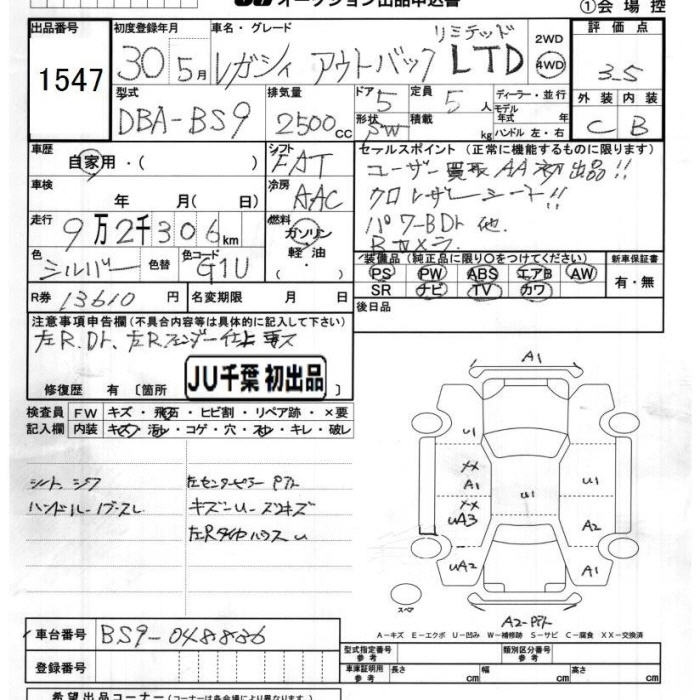 オークション出品申込書
①会場控
出品番号
1547
初度登録年月
30年5月
車名・グレード
レガシィ アウトバック LTD
リミテッド
2WD
4WD
評価点
3.5
型式
DBA-BS9
排気量
2500cc
ドア
5
定員
5人
形状
SW
積載
kg
ディーラー・並行
モデル年式 年式
ハンドル 左・右
外装
内装
C
B
車歴
自家用・( )
シフト
FAT
車検
年 月( 日)
冷房
AAC
走行
9万2千306km
燃料
ガソリン
軽油
色
シルバー
色替
色コード
G1U
セールスポイント (正常に機能するものに限ります)
ユーザー買取 AA初出品!!
クロレザーシート!!
パワーBDr 他.
Bカメラ.
装備品(純正品に限り○をつけてください)
新車保証書
PS PW ABS エアB AW
SR ナビ TV カワ
有・無
R券
13610円
名変期限 月 日
後日品
注意事項申告欄(不具合内容等は具体的に記入して下さい)
左R.Dr、左Rフェンダー仕上
修復歴 有〔箇所
JU千葉 初出品
検査員
記入欄
FW
キズ・飛石・ヒビ割・リペア跡・×要
内装
キズ・汚レ・コゲ・穴・スレ・キレ・破レ
シート シワ
ハンドル・ノブスレ
左センターピラー
キズ-U-スリキズ
左Rタイヤハウス U
A1
U1
XX
A1
XX
UA3
UA2
U1
U1
A2
A1
スペア
A2-
A-キズ E-エクボ U-凹み W-補修跡 S-サビ C-腐食 XX-交換済
車台番号
BS9-048886
登録番号
型式指定番号
参考
類別区分番号
参考
車庫証明用
参考
長さ cm
幅 cm
高さ cm
希望出品コーナー(コーナーは各会場により異なります。)